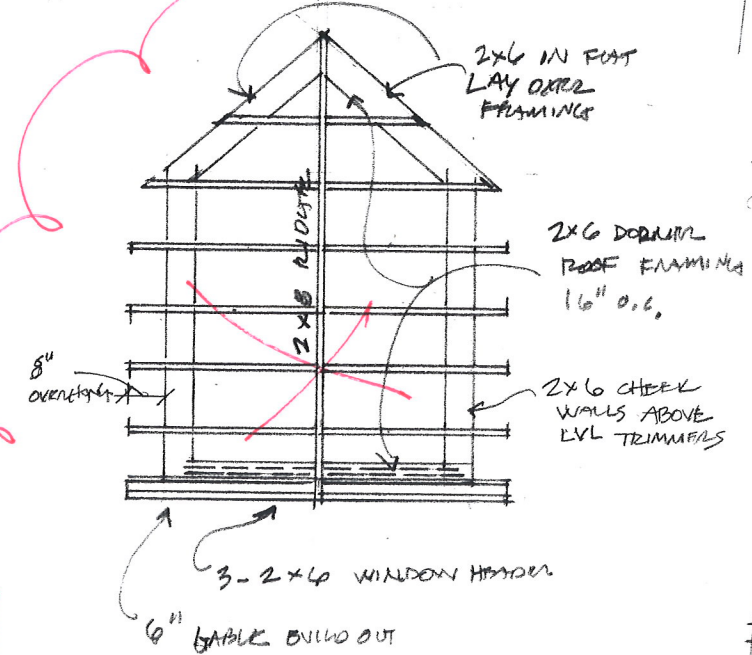 2x6 IN FLAT
LAY OVER
FRAMING
2x6 DORMER
ROOF FRAMING
16" O.C.
2x8 RIDGE
8"
OVERHANG
2x6 CHEEK
WALLS ABOVE
LVL TRIMMERS
3-2x6 WINDOW HEADER
6" GABLE BUILD OUT